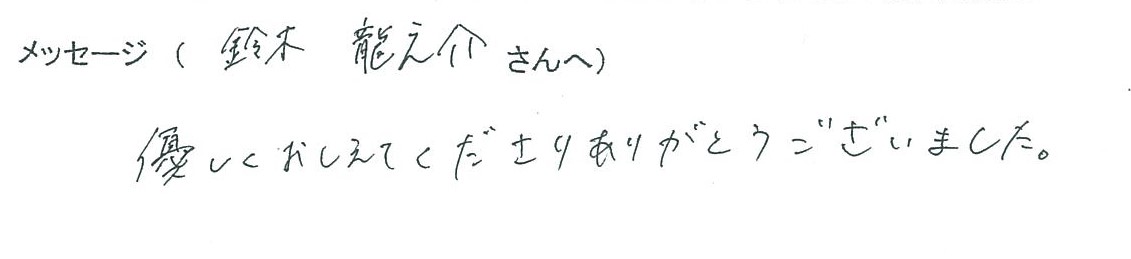 メッセージ（ 鈴木 龍之介 さんへ）
優しくおしえてくださりありがとうございました。